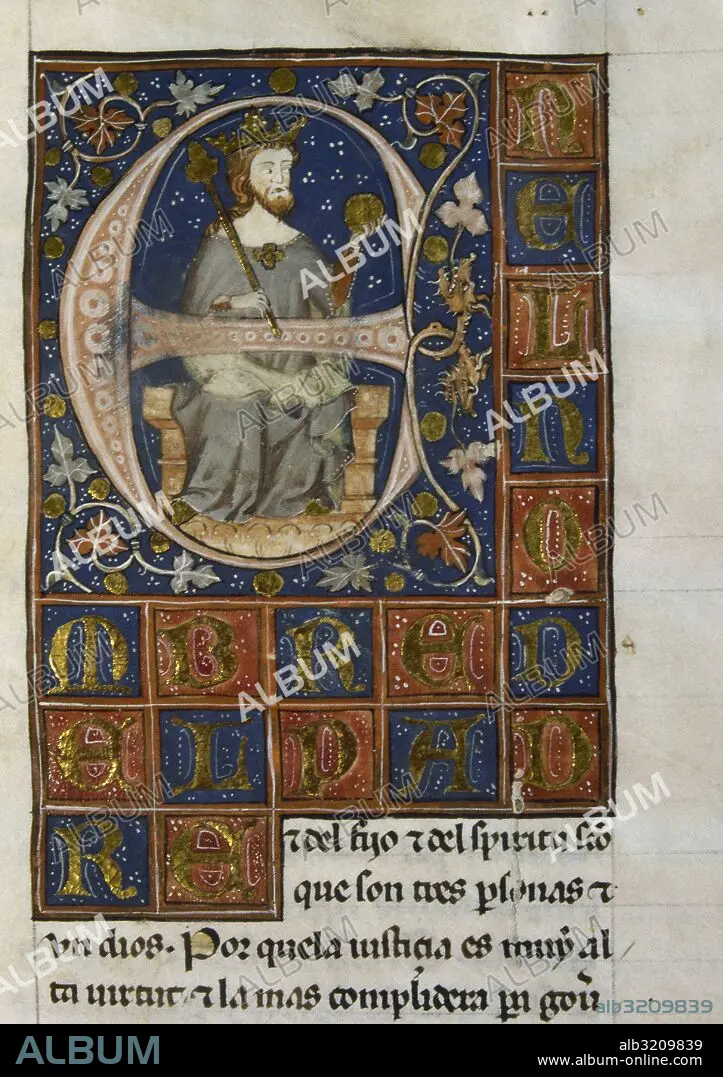 E
N
E
L
N
O
M B R E D
E L P A D
R E ⁊ del fijo ⁊ del spiritu sco
que son tres psonas ⁊
dios. Por que la iusticia es muy al
ta uirtut ⁊ la mas conplidera pa gou
alb3209839
ALBUM
alb3209839
www.album-online.com